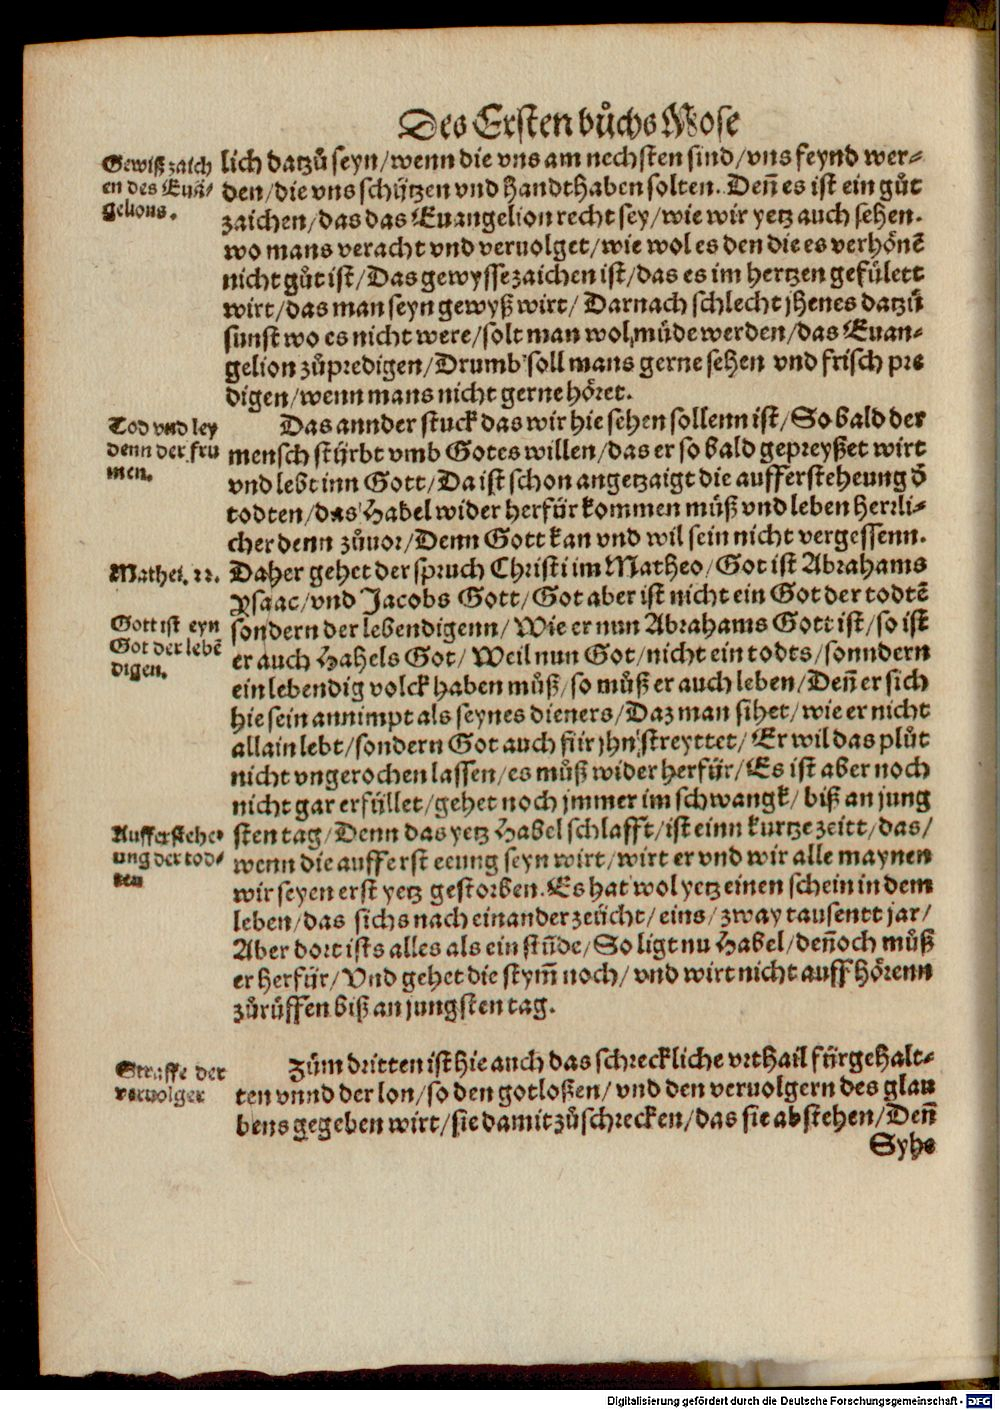 Des Ersten bůchs Mose
Gewiß zaich
en des Euã-
gelions.
lich datzů seyn/wenn die vns am nechsten sind/vns feynd wer-
den/die vns schützen vnd handthaben solten. Deñ es ist ein gůt
zaichen/das das Euangelion recht sey/wie wir yetz auch sehen.
wo mans veracht vnd veruolget/wie wol es den die es verhönẽ
nicht gůt ist/Das gewysse zaichen ist/das es im hertzen gefülett
wirt/das man seyn gewyß wirt/ Darnach schlecht jhenes datzů
sunst wo es nicht were/solt man wol müde werden/das Euan-
gelion zůpredigen/Drumb soll mans gerne sehen vnd frisch pre
digen/wenn mans nicht gerne höret.
Tod vnd ley
denn der fru
men.
Das annder stuck das wir hie sehen sollenn ist/So bald der
mensch stürbt vmb Gotes willen/das er so bald gepreyßet wirt
vnd lebt inn Gott/Da ist schon angetzaigt die auffersteheung õ
todten/das Habel wider herfür kommen můß vnd leben herrli-
cher denn zůuor/Denn Gott kan vnd wil sein nicht vergessenn.
Mathei. 22.
Daher gehet der spruch Christi im Matheo/Got ist Abrahams
Ysaac/vnd Jacobs Gott/Got aber ist nicht ein Got der todtẽ
Gott ist eyn
Got der lebẽ
digen.
sondern der lebendigenn/Wie er nun Abrahams Gott ist/so ist
er auch Hahels Got/ Weil nun Got/nicht ein todts/sonndern
ein lebendig volck haben můß/so můß er auch leben/Deñ er sich
hie sein annimpt als seynes dieners/Daz man sihet/wie er nicht
allain lebt/sondern Got auch für jhn streyttet/ Er wil das plůt
nicht vngerochen lassen/es můß wider herfür/Es ist aber noch
nicht gar erfüllet/gehet noch jmmer im schwangk/ biß an jung
Aufferstehe-
ung der tod-
ten
sten tag/Denn das yetz Habel schlafft/ist einn kurtze zeitt/das/
wenn die aufferst eeung seyn wirt/wirt er vnd wir alle maynen
wir seyen erst yetz gestorben. Es hat wol yetz einen schein in dem
leben/das sichs nach einander zeücht/eins/zway tausentt jar/
Aber dort ists alles als ein stũde/So ligt nu Habel/deñoch můß
er herfür/Vnd gehet die stym̃ noch/ vnd wirt nicht auff hörenn
zůrůffen biß an jungsten tag.
Straffe der
veruolger
Zům dritten ist hie auch das schreckliche vrthail fürgehalt-
ten vnnd der lon/so den gotloßen/vnd den veruolgern des glau
bens gegeben wirt/sie damit zůschrecken/das sie abstehen/Deñ
Syhe
Digitalisierung gefördert durch die Deutsche Forschungsgemeinschaft - DFG